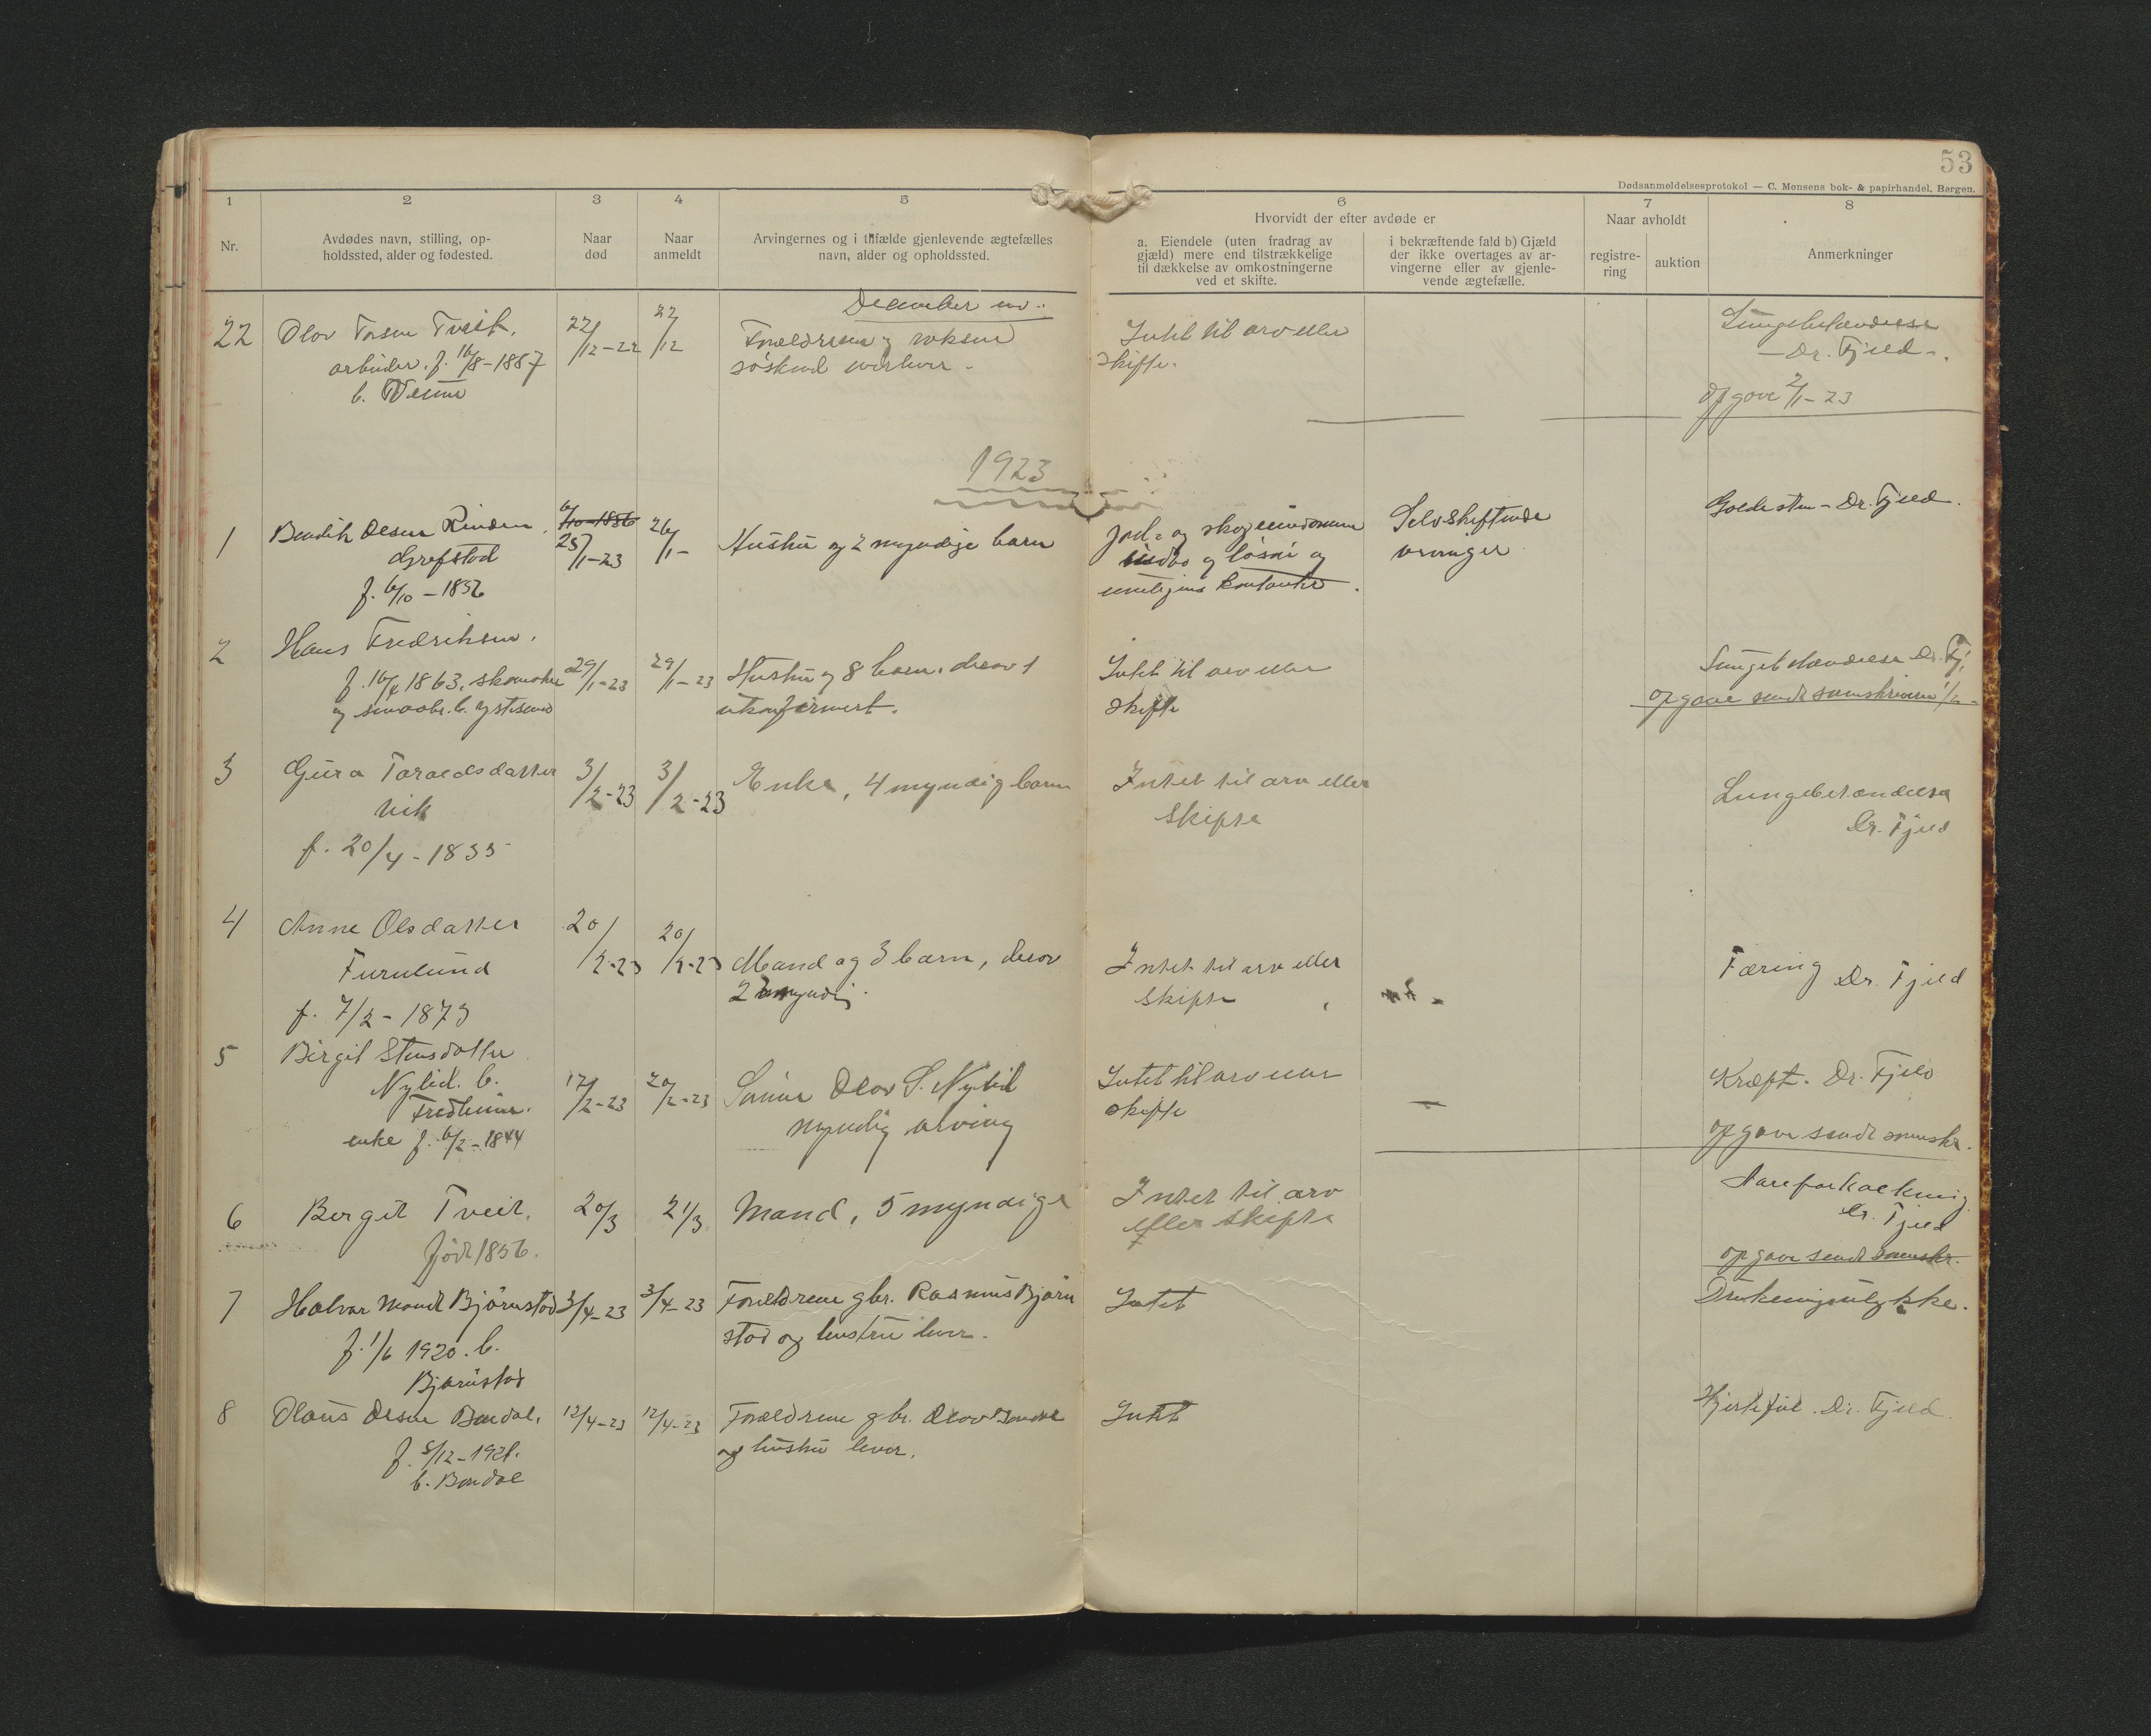 53
Dødsanmeldelsesprotokol — C. Monsens bok- & papirhandel, Bergen.
1 2 3 4 5 6 7 8
Nr.
Avdødes navn, stilling, op-
holdssted, alder og fødested.
Naar
død
Naar
anmeldt
Arvingernes og i tilfælde gjenlevende ægtefælles
navn, alder og opholdssted.
Hvorvidt der efter avdøde er
a. Eiendele (uten fradrag av
gjæld) mere end tilstrækkelige
til dækkelse av omkostningerne
ved et skifte.
i bekræftende fald b) Gjæld
der ikke overtages av ar-
vingerne eller av gjenle-
vende ægtefælle.
Naar avholdt
registre-
ring
auktion
Anmerkninger
December
22
Olav Tveit.
arbeider. f. 16/8-1887
b.
22/12-22
22/12
Forældrene og voksne
søskend
Intet til arv eller
skifte.
Lungebetændelse
- Dr. Fjeld -.
opgave 2/1-23
1923
1
Bendik Olsen Rinden.
Grefstad
f. 6/10-1856
6/10-1856
25/1-23
26/1-
Hustru og 2 myndige barn
Jord- og skogeiendomme
indbo og løsøre og
kontanter.
Selvskiftende
arvinger
Galdesten - Dr. Fjeld.
2
Hans Fredriksen.
f. 16/4 1863. skomaker
og b.
29/1-23
29/1-23
Hustru og 8 barn, derav 1
ukonfirmert.
Intet til arv eller
skifte
Lungebetændelse Dr. Fj.
opgave sendt
3
Gura Taraldsdatter
Vik
f. 20/4-1835
3/2-23
3/2-23
Enke, 4 myndig barn
Intet til arv eller
skifte
Lungebetændelse
Dr. Fjeld
4
Anne Olsdatter
Furulund
f. 7/2-1873
20/2-23
20/2-23
Mand og 3 barn, derav
2 myndig.
Intet til arv eller
skifte
Tæring Dr. Fjeld
5
Birgit Stensdatter
Nylid. b.
Fredheim.
enke f. 6/2-1844
17/2-23
20/2-23
Sønn Olav S. Nylid
myndig arving
Intet til arv eller
skifte
—
Kræft. Dr. Fjeld
opgave sendt sorenskr.
6
Bergit Tveit.
født 1856.
20/3
21/3
Mand, 5 myndige
Intet til arv
eller skifte
Aareforkalkning
Dr. Fjeld
opgave sendt sorenskr.
7
Halvar Bjørnstad
f. 1/6 1920. b.
Bjørnstad
3/4-23
3/4-23
Forældrene gbr. Rasmus Bjørn
stad og hustru lever.
Intet
Drukningsulykke.
8
Olaus Olsen Bondal.
f. 5/12-1921.
b. Bondal
12/4-23
12/4-23
Forældrene gbr. Olav Bondal
og hustru lever.
Intet
Hjertefeil. Dr. Fjeld.